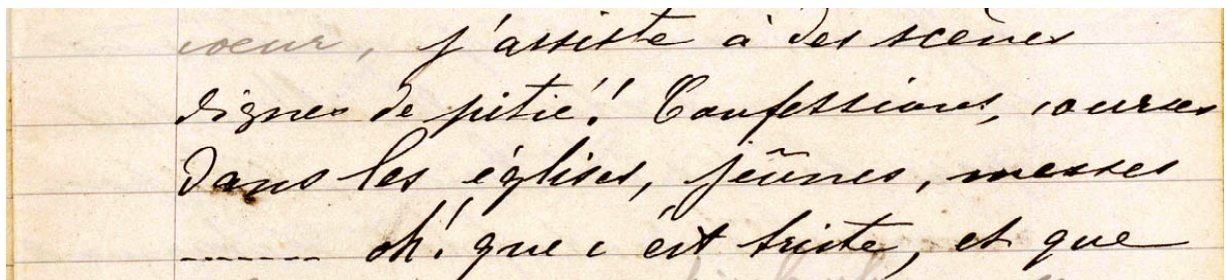 coeur, j'assiste à des scènes
dignes de pitié! Confessions, courses
dans les églises, jeûnes, messes
------- oh! que c'est triste, et que